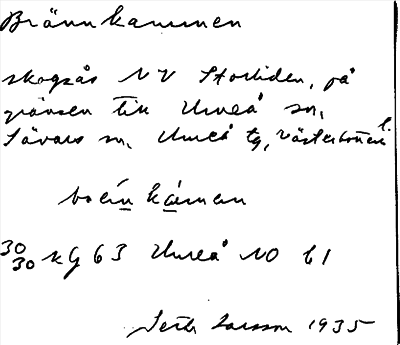 Brännkammen
skogsås NV Storliden, på
gränsen till Umeå sn,
Sävars sn, Umeå tg, Västerbottens l.
kammen
30/30 kg 63 Umeå NO 61
Seth Larsson 1935